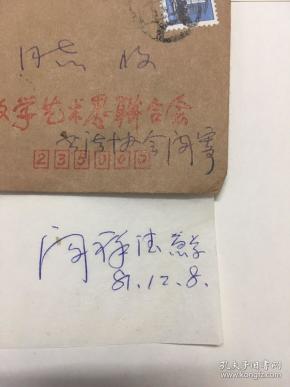 同志 收
文学艺术界联合会
书法协会 闵寄
235000
闵祥德
81.12.8.
孔夫子旧书网